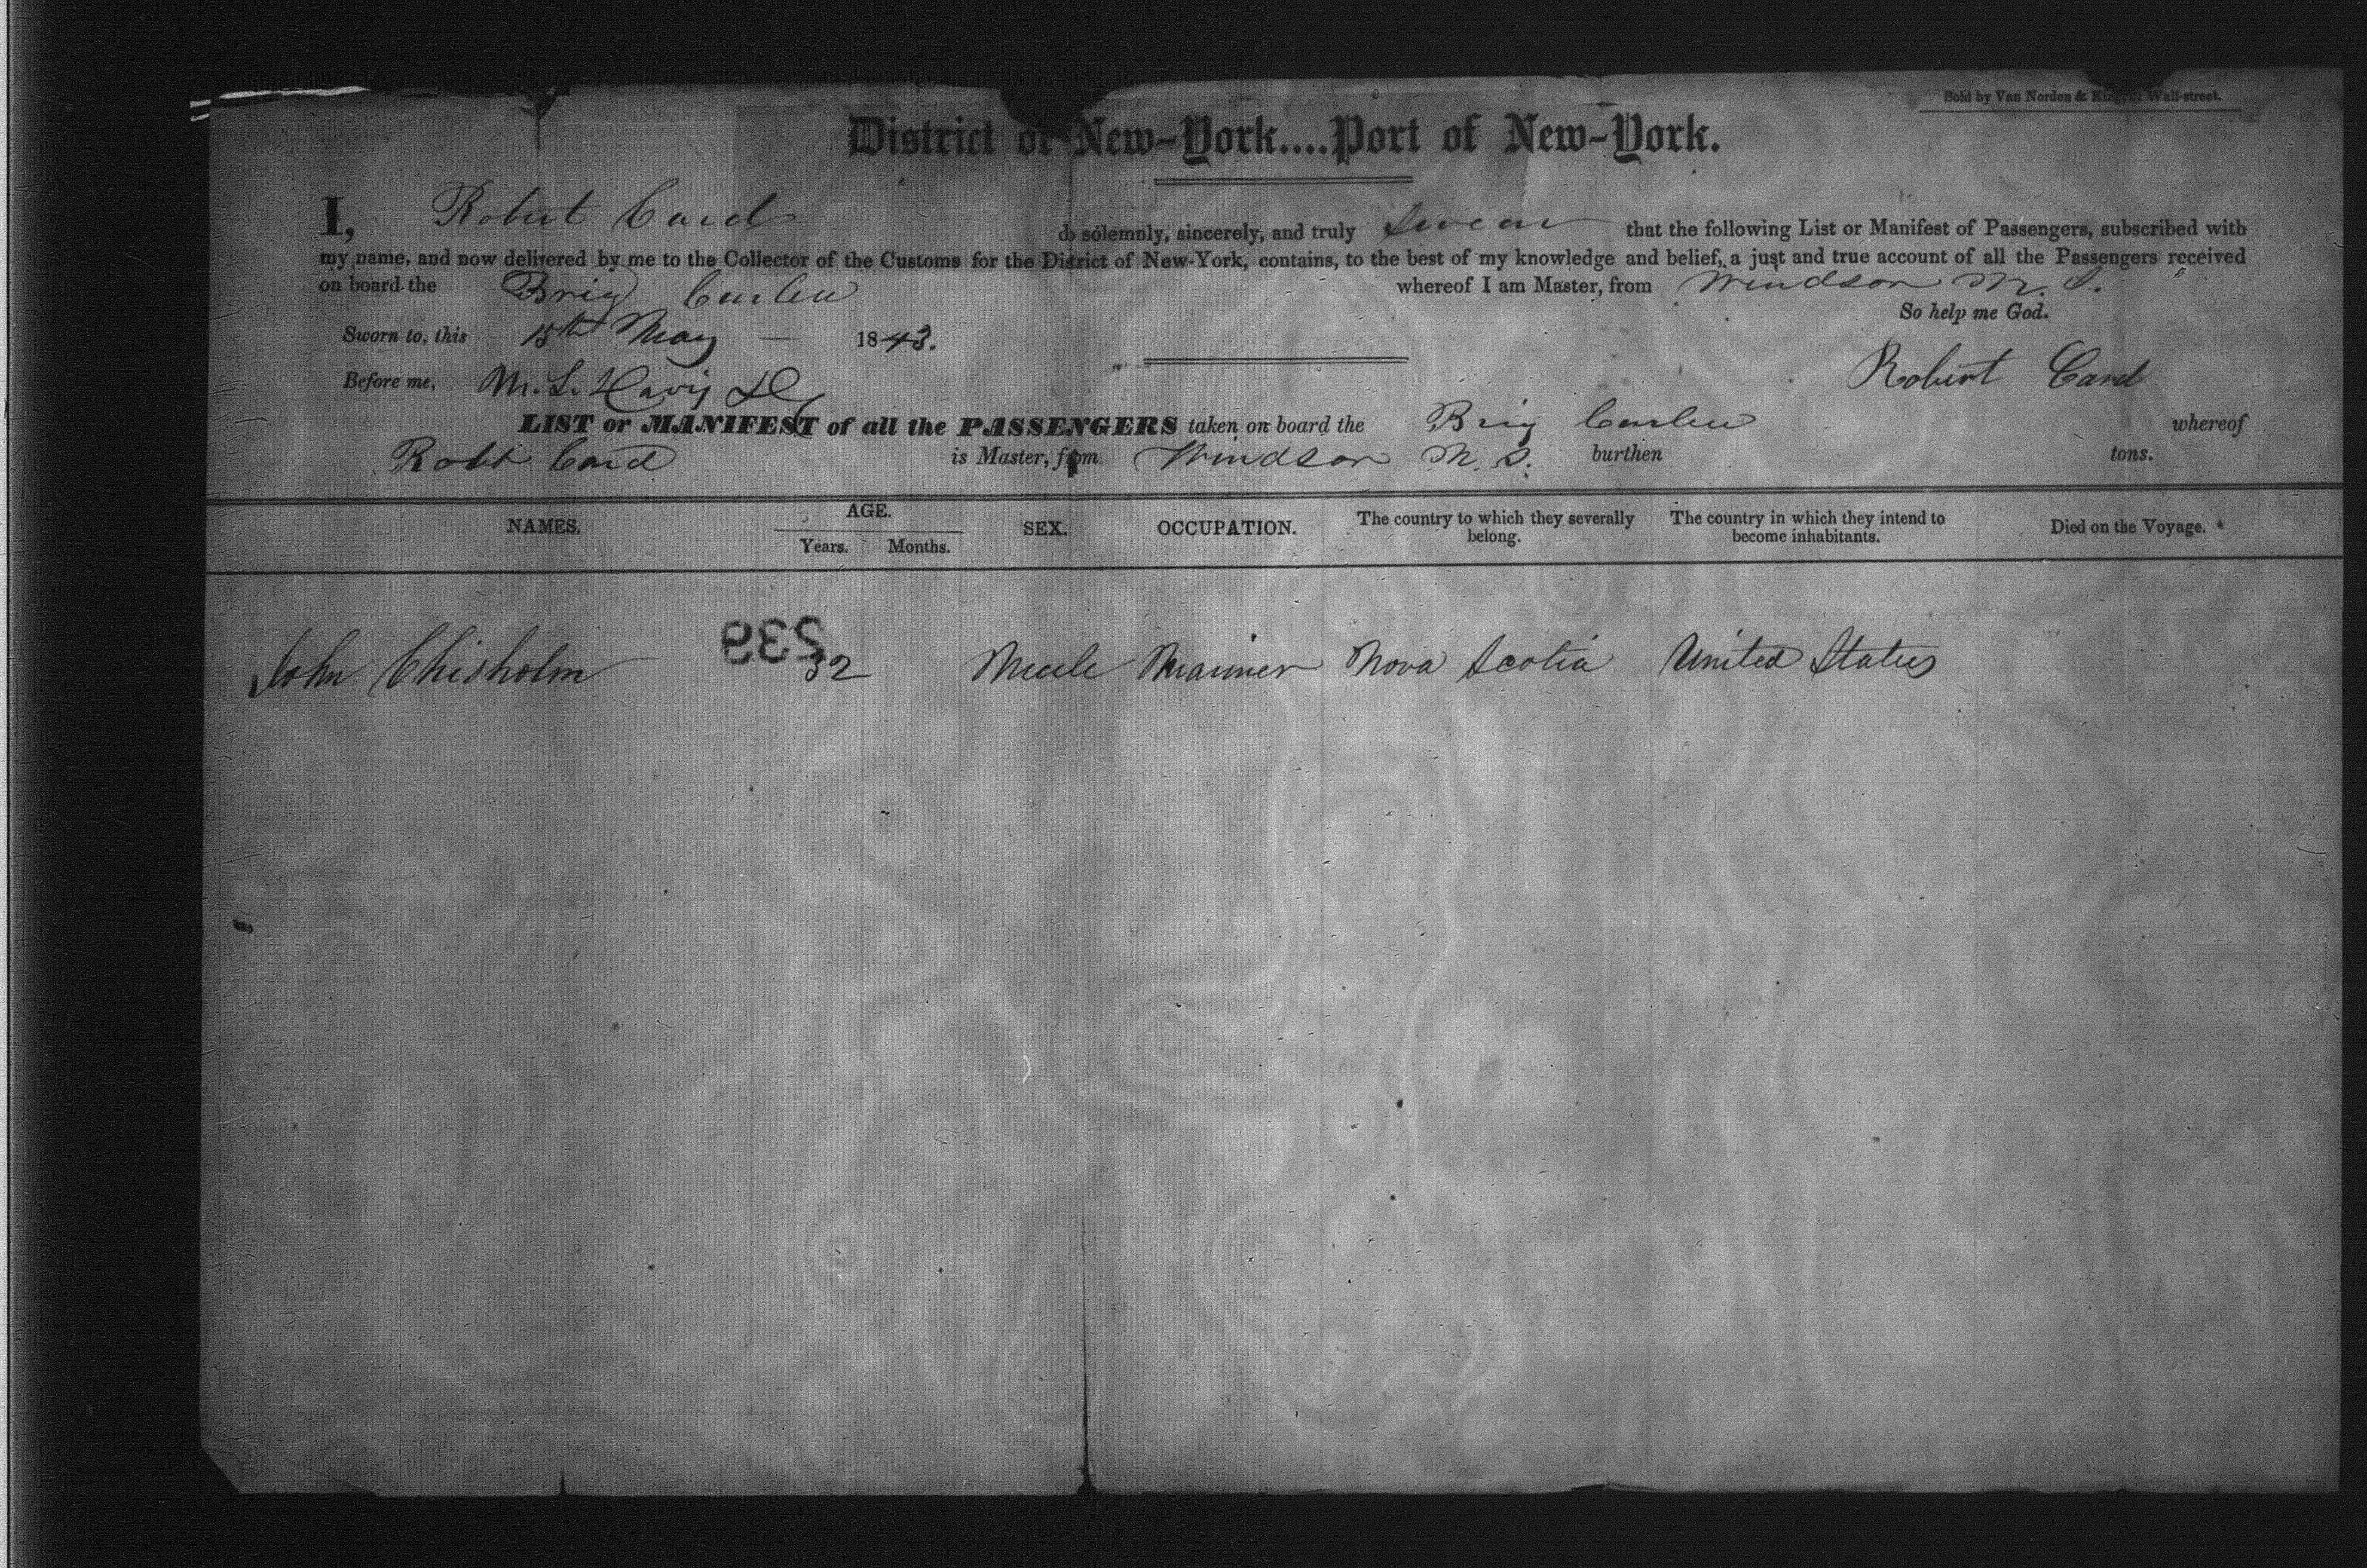 Sold by Van Norden & King, Wall-street.
District of New-York....Port of New-York.
I, Robert Card do solemnly, sincerely, and truly swear that the following List or Manifest of Passengers, subscribed with
my name, and now delivered by me to the Collector of the Customs for the District of New-York, contains, to the best of my knowledge and belief, a just and true account of all the Passengers received
on board the Brig Curlew whereof I am Master, from Windsor N. S.
So help me God.
Sworn to, this 15th May 1843.
Robert Card
Before me, M. L. Davis
LIST or MANIFEST of all the PASSENGERS taken on board the Brig Curlew whereof
Robt Card is Master, from Windsor N. S. burthen tons.
NAMES. AGE. Years. Months. SEX. OCCUPATION. The country to which they severally belong. The country in which they intend to become inhabitants. Died on the Voyage.
539
John Chisholm 32 Male Mariner Nova Scotia United States